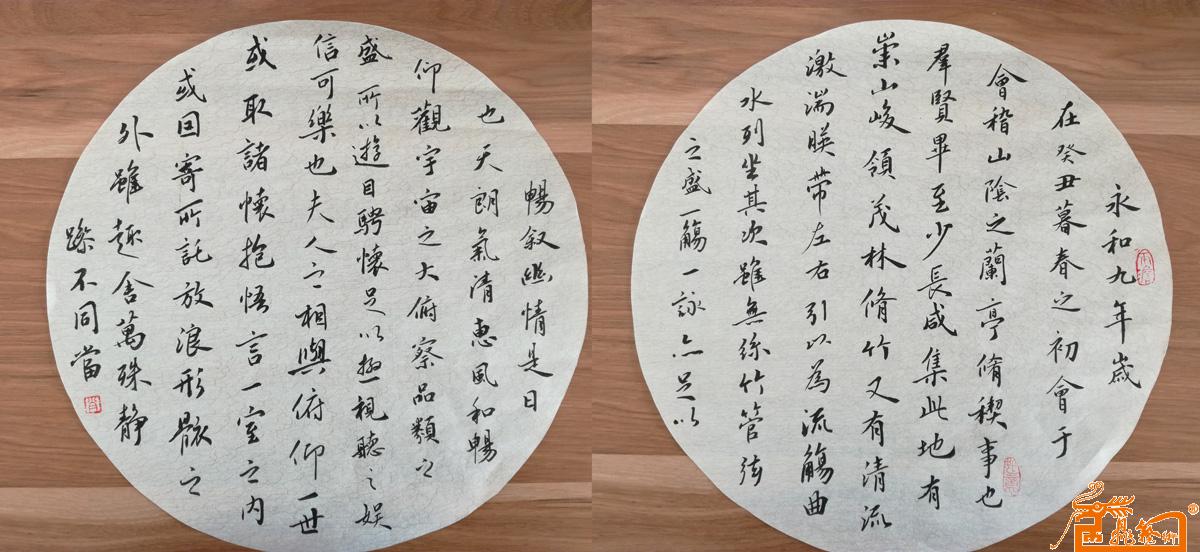 永和九年歲
在癸丑暮春之初會于
會稽山陰之蘭亭脩稧事也
羣賢畢至少長咸集此地有
崇山峻領茂林脩竹又有清流
激湍暎帶左右引以為流觴曲
水列坐其次雖無絲竹管弦
之盛一觴一詠亦足以
暢叙幽情是日
也天朗氣清惠風和暢
仰觀宇宙之大俯察品類之
盛所以遊目騁懷足以極視聽之娱
信可樂也夫人之相與俯仰一世
或取諸懷抱悟言一室之内
或因寄所託放浪形骸之
外雖趣舍萬殊静
躁不同當